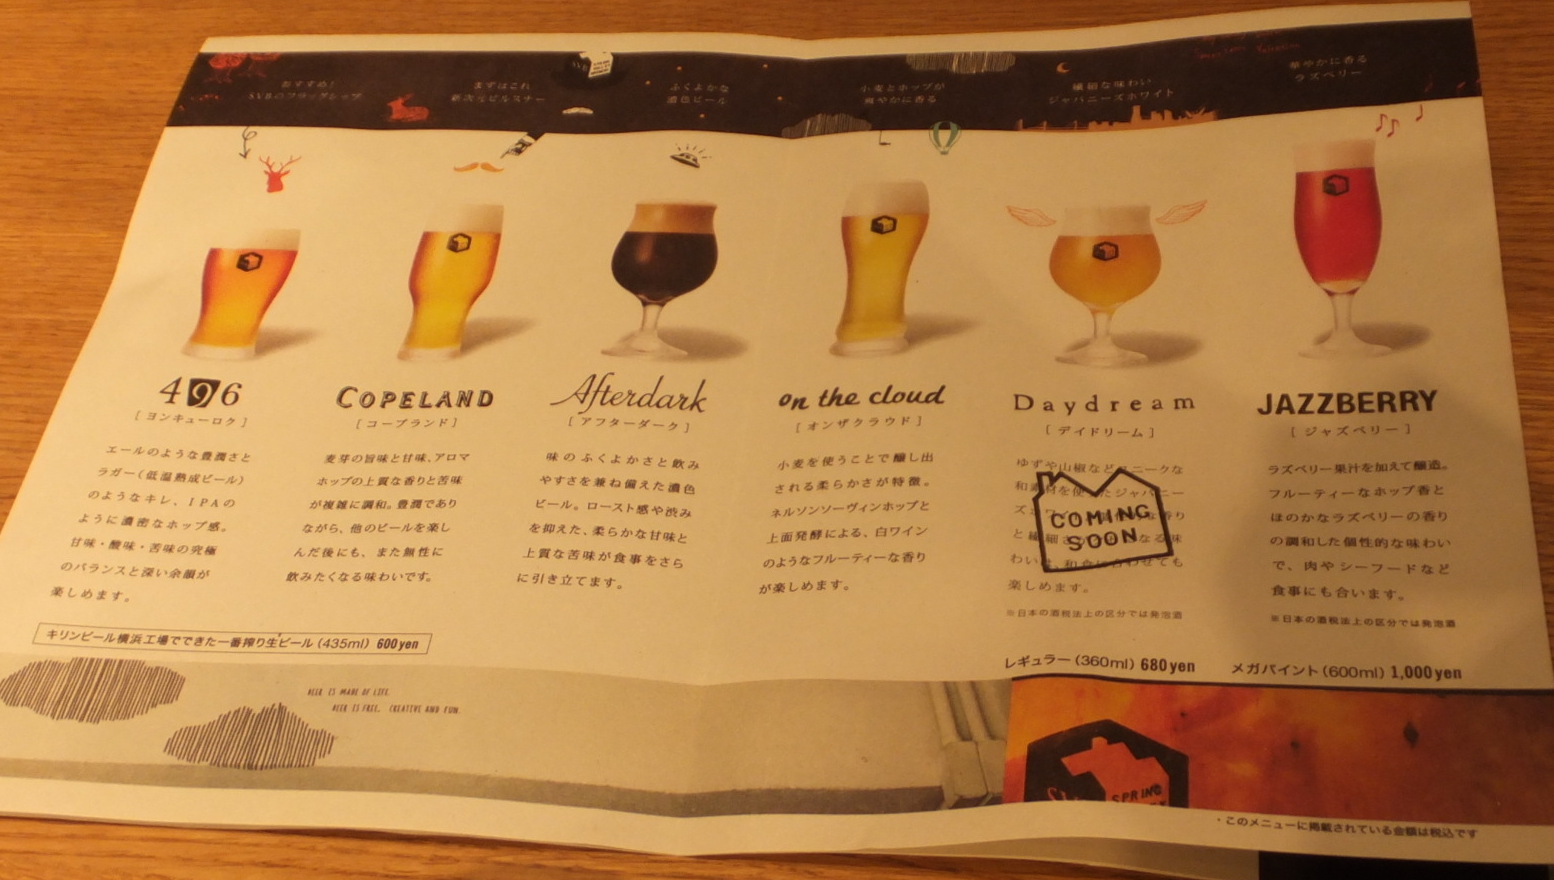 おすすめ!
SVBのフラッグシップ
まずはこれ
新次元ピルスナー
ふくよかな
濃色ビール
小麦とホップが
爽やかに香る
繊細な味わい
ジャパニーズホワイト
華やかに香る
ラズベリー
496
[ヨンキューロク]
エールのような豊潤さと
ラガー(低温熟成ビール)
のようなキレ、IPAの
ように濃密なホップ感。
甘味・酸味・苦味の究極
のバランスと深い余韻が
楽しめます。
COPELAND
[コープランド]
麦芽の旨味と甘味、アロマ
ホップの上質な香りと苦味
が複雑に調和。豊潤であり
ながら、他のビールを楽し
んだ後にも、また無性に
飲みたくなる味わいです。
Afterdark
[アフターダーク]
味のふくよかさと飲み
やすさを兼ね備えた濃色
ビール。ロースト感や渋み
を抑えた、柔らかな甘味と
上質な苦味が食事をさら
に引き立てます。
on the cloud
[オンザクラウド]
小麦を使うことで醸し出
される柔らかさが特徴。
ネルソンソーヴィンホップと
上面発酵による、白ワイン
のようなフルーティーな香り
が楽しめます。
Daydream
[デイドリーム]
ゆずや山椒などユニークな
和素材を使ったジャパニー
香り
と繊細 なる味
わい 和食に合わせても
楽しめます。
※日本の酒税法上の区分では発泡酒
COMING
SOON
JAZZBERRY
[ジャズベリー]
ラズベリー果汁を加えて醸造。
フルーティーなホップ香と
ほのかなラズベリーの香り
の調和した個性的な味わい
で、肉やシーフードなど
食事にも合います。
※日本の酒税法上の区分では発泡酒
キリンビール横浜工場でできた一番搾り生ビール(435ml) 600yen
レギュラー(360ml) 680yen メガパイント(600ml) 1,000yen
BEER IS MADE OF LIFE.
BEER IS FREE, CREATIVE AND FUN.
SPRING
・このメニューに掲載されている金額は税込です